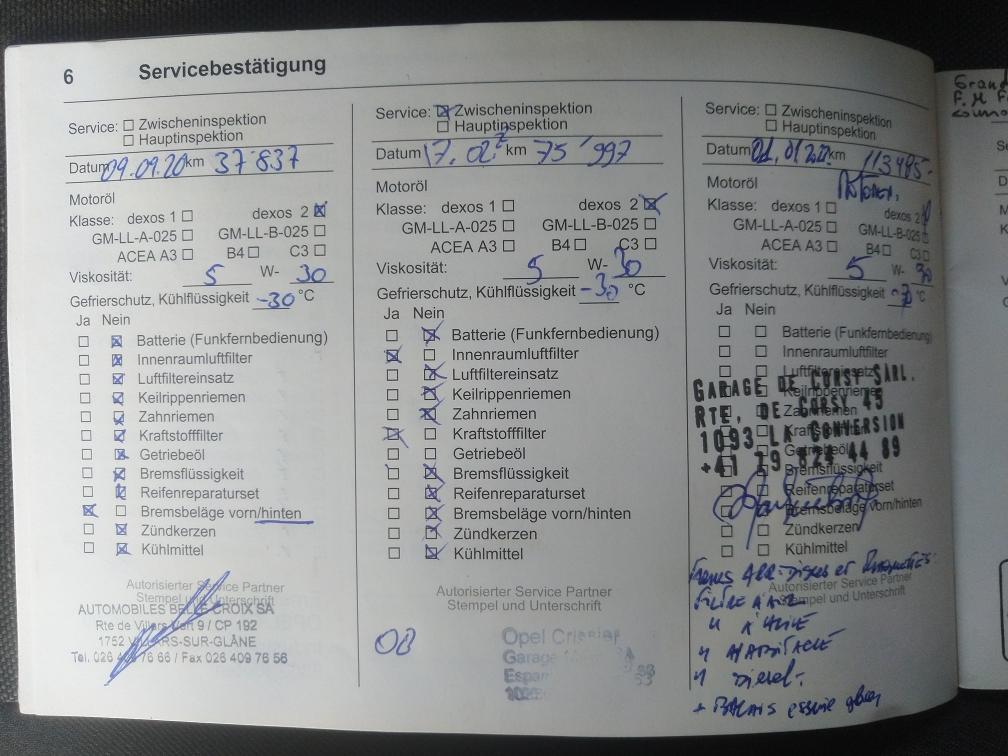 6 Servicebestätigung
Service: Zwischeninspektion
Hauptinspektion
Datum 09.09.20 km 37'837
Motoröl
Klasse: dexos 1 dexos 2
GM-LL-A-025 GM-LL-B-025
ACEA A3 B4 C3
Viskosität: 5 W- 30
Gefrierschutz, Kühlflüssigkeit -30 °C
Ja Nein
Batterie (Funkfernbedienung)
Innenraumluftfilter
Luftfiltereinsatz
Keilrippenriemen
Zahnriemen
Kraftstofffilter
Getriebeöl
Bremsflüssigkeit
Reifenreparaturset
Bremsbeläge vorn/hinten
Zündkerzen
Kühlmittel
Autorisierter Service Partner
Stempel und Unterschrift
AUTOMOBILES BELLE CROIX SA
Rte de Villars-Vert 9 / CP 192
1752 VILLARS-SUR-GLÂNE
Tél. 026 409 76 66 / Fax 026 409 76 56
Service: Zwischeninspektion
Hauptinspektion
Datum 17.02.22 km 75'997
Motoröl
Klasse: dexos 1 dexos 2
GM-LL-A-025 GM-LL-B-025
ACEA A3 B4 C3
Viskosität: 5 W- 30
Gefrierschutz, Kühlflüssigkeit -30 °C
Ja Nein
Batterie (Funkfernbedienung)
Innenraumluftfilter
Luftfiltereinsatz
Keilrippenriemen
Zahnriemen
Kraftstofffilter
Getriebeöl
Bremsflüssigkeit
Reifenreparaturset
Bremsbeläge vorn/hinten
Zündkerzen
Kühlmittel
Autorisierter Service Partner
Stempel und Unterschrift
OB
Opel Crissier
Garage
Service: Zwischeninspektion
Hauptinspektion
Datum km 113485
Motoröl
Klasse: dexos 1 dexos 2
GM-LL-A-025 GM-LL-B-025
ACEA A3 B4 C3
Viskosität: 5 W- 30
Gefrierschutz, Kühlflüssigkeit °C
Ja Nein
Batterie (Funkfernbedienung)
Innenraumluftfilter
Luftfiltereinsatz
Keilrippenriemen
Zahnriemen
Kraftstofffilter
Getriebeöl
Bremsflüssigkeit
Reifenreparaturset
Bremsbeläge vorn/hinten
Zündkerzen
Kühlmittel
GARAGE DE CORSY SÀRL.
RTE. DE CORSY 45
1093 LA CONVERSION
+41 79 824 44 89
Autorisierter Service Partner
Stempel und Unterschrift
Freins ARR. Disques et Plaquettes
Filtre à air
" à huile
" Habitacle
" Diesel
+ Balais essuie glaces